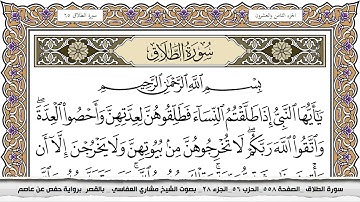 الجزء الثامن والعشرون
سورة الطلاق ٦٥
سُورَةُ الطَّلَاقِ
بِسْمِ اللَّهِ الرَّحْمَٰنِ الرَّحِيمِ
يَا أَيُّهَا النَّبِيُّ إِذَا طَلَّقْتُمُ النِّسَاءَ فَطَلِّقُوهُنَّ لِعِدَّتِهِنَّ وَأَحْصُوا الْعِدَّةَ ۖ
وَاتَّقُوا اللَّهَ رَبَّكُمْ ۖ لَا تُخْرِجُوهُنَّ مِنْ بُيُوتِهِنَّ وَلَا يَخْرُجْنَ إِلَّا أَنْ
سورة الطلاق الصفحة ٥٥٨ الحزب ٥٦ الجزء ٢٨ بصوت الشيخ مشاري العفاسي بالقصر برواية حفص عن عاصم